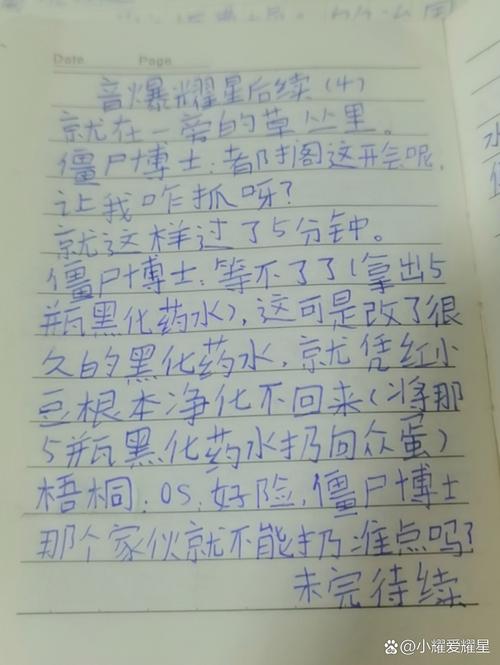 Date
Page
音爆耀星后续(4)
就在一旁的草丛里。
僵尸博士:都搁这开会呢,
让我咋抓呀?
就这样过了5分钟。
僵尸博士:等不了了(拿出5
瓶黑化药水),这可是改了很
久的黑化药水,就凭红小
豆根本净化不回来(将那
5瓶黑化药水扔向众蛋)
梧桐:OS:好险,僵尸博士
那个家伙就不能扔准点吗?
未完待续
小耀爱耀星